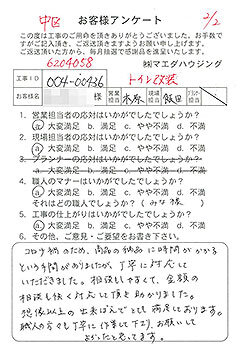 中区 お客様アンケート 2/2
この度は工事のご用命を頂きありがとうございました。お手数で
すがご記入頂き、ご返送頂きますようお願い申し上げます。
ご返送頂いた方から、毎月抽選で感謝品を進呈いたします。
6204058 ㈱マエダハウジング
工事ID 004-00436 トイレ改装
お客様名 様 営業担当 木原 現場担当 飯田
1. 営業担当者の応対はいかがでしたでしょうか?
a 大変満足 b. 満足 c. やや不満 d. 不満
2. 現場担当者の応対はいかがでしたでしょうか?
a 大変満足 b. 満足 c. やや不満 d. 不満
3. プランナーの応対はいかがでしたでしょうか?
a. 大変満足 b. 満足 c. やや不満 d. 不満
4. 職人のマナーはいかがでしたでしょうか?
a 大変満足 b. 満足 c. やや不満 d. 不満
それはどの職人でしょうか?( みな様 )
5. 工事の仕上がりはいかがでしたでしょうか?
a 大変満足 b. 満足 c. やや不満 d. 不満
6. その他、ご意見・ご要望をお書き下さい。
コロナ禍のため、商品の納品に時間がかかる
という事がありましたが、丁寧に対応して
いただきました。相談もしやすくて、金額の
相談も快く対応して頂き助かりました。
想像以上の出来ばえでとても満足しております。
職人の方々も丁寧に作業して下さり、お願いして
よかったと思ってます。